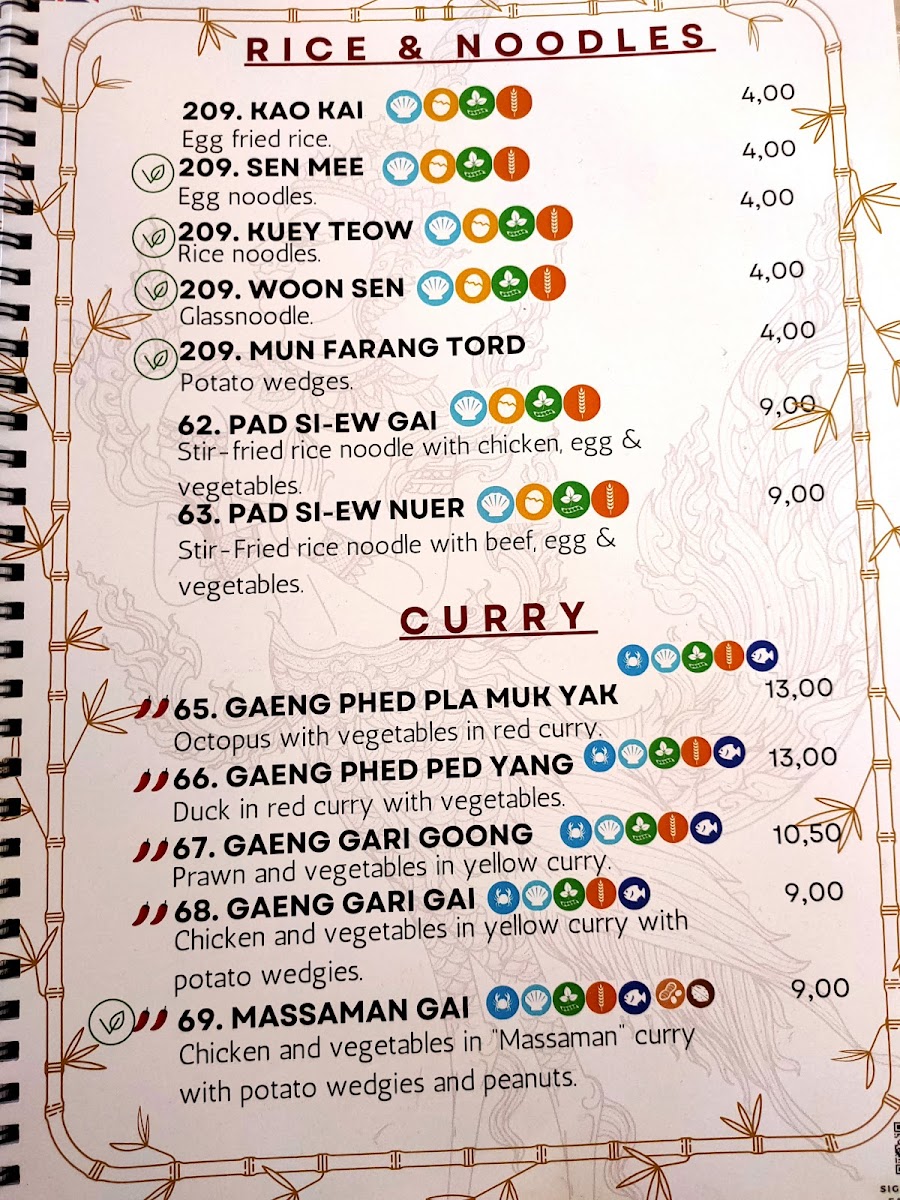 RICE & NOODLES
209. KAO KAI 4,00
Egg fried rice.
209. SEN MEE 4,00
Egg noodles.
209. KUEY TEOW 4,00
Rice noodles.
209. WOON SEN 4,00
Glassnoodle.
209. MUN FARANG TORD 4,00
Potato wedges.
62. PAD SI-EW GAI 9,00
Stir-fried rice noodle with chicken, egg &
vegetables.
63. PAD SI-EW NUER 9,00
Stir-Fried rice noodle with beef, egg &
vegetables.
CURRY
65. GAENG PHED PLA MUK YAK 13,00
Octopus with vegetables in red curry.
66. GAENG PHED PED YANG 13,00
Duck in red curry with vegetables.
67. GAENG GARI GOONG 10,50
Prawn and vegetables in yellow curry.
68. GAENG GARI GAI 9,00
Chicken and vegetables in yellow curry with
potato wedgies.
69. MASSAMAN GAI 9,00
Chicken and vegetables in "Massaman" curry
with potato wedgies and peanuts.
SIG